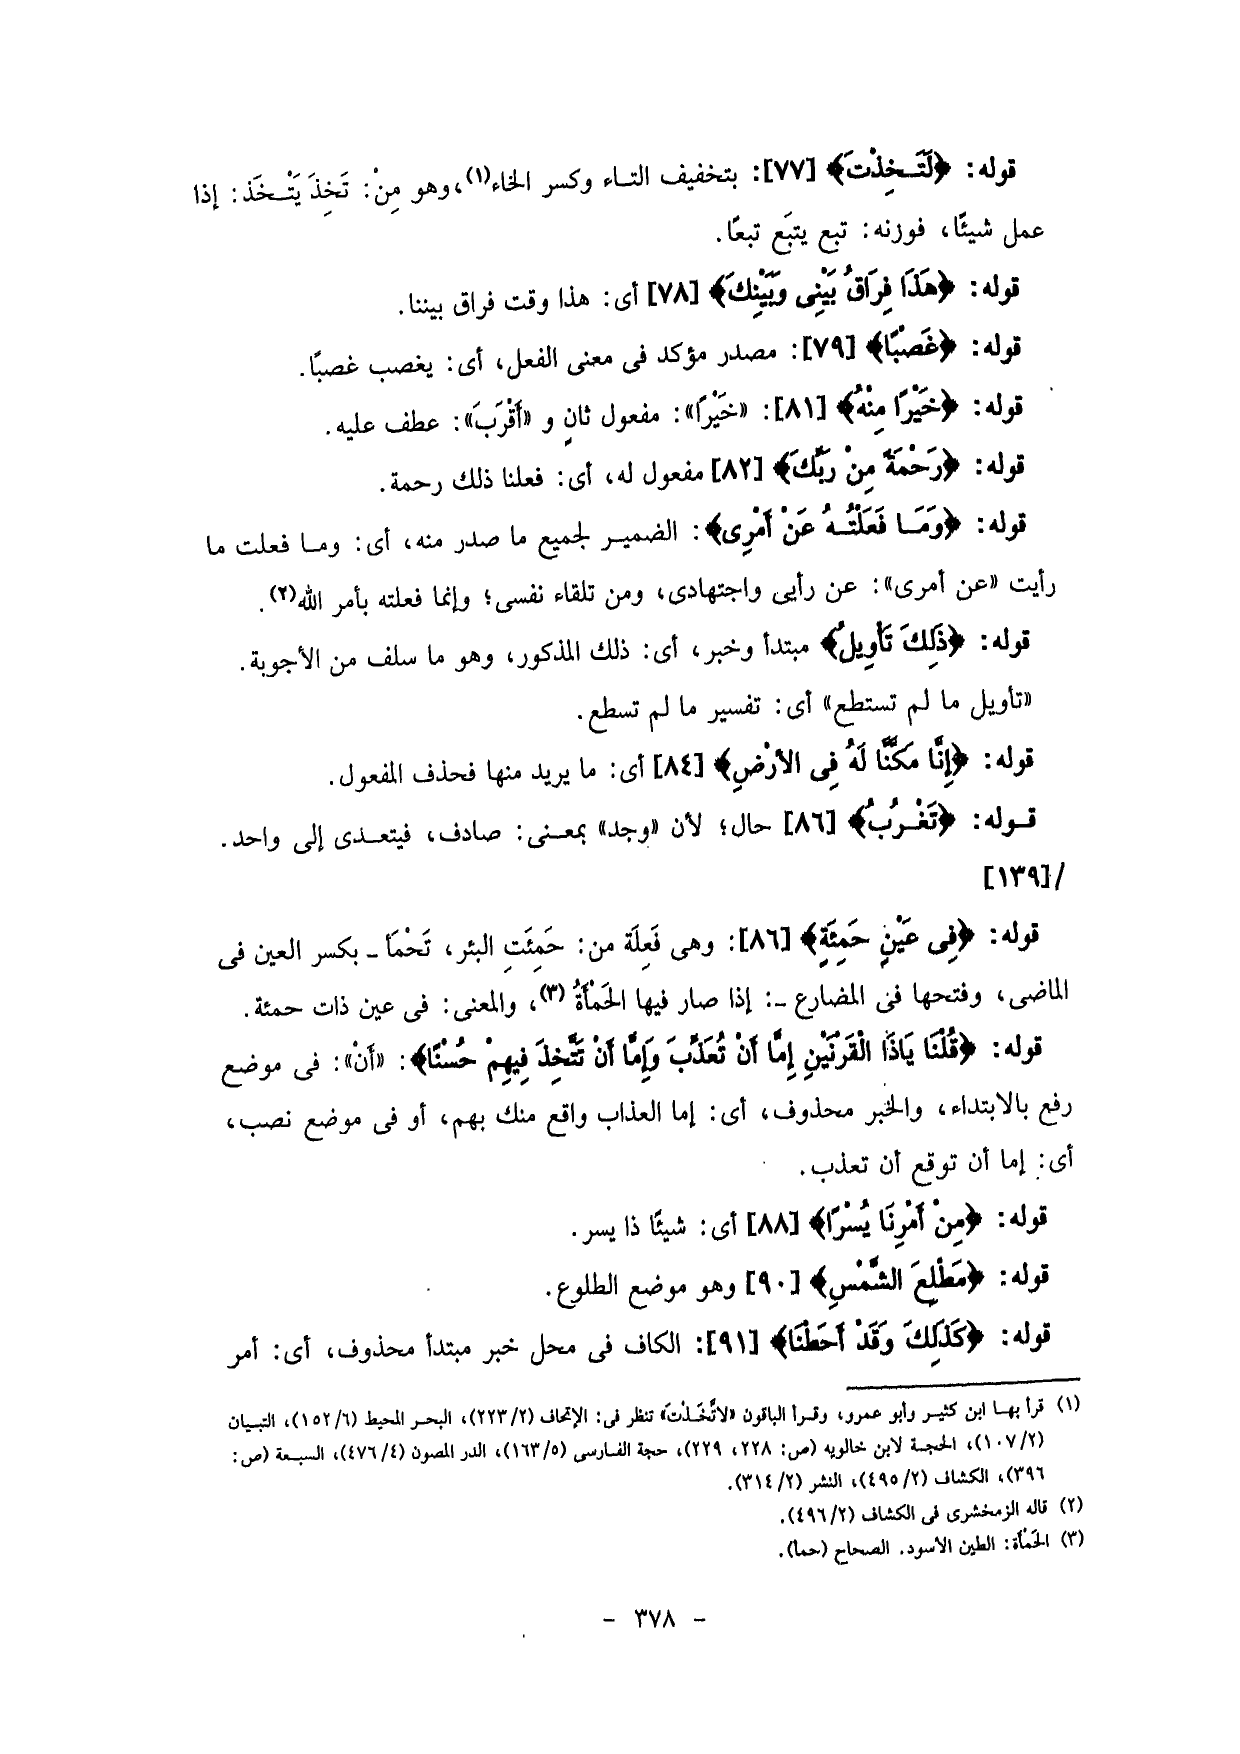 قوله: ﴿لَتَـخِذْتَ﴾ [٧٧]: بتخفيف التـاء وكسر الخاء(١)، وهو مِنْ: تَخِذَ يَتْـخَذ: إذا
عمل شيئًا، فوزنه: تبع يتبَع تبعًا.
قوله: ﴿هَذَا فِرَاقُ بَيْنِى وَبَيْنِكَ﴾ [٧٨] أى: هذا وقت فراق بيننا.
قوله: ﴿غَصْبًا﴾ [٧٩]: مصدر مؤكد فى معنى الفعل، أى: يغصب غصبًا.
قوله: ﴿خَيْرًا مِنْهُ﴾ [٨١]: «خَيْرًا»: مفعول ثانٍ و «أَقْرَبَ»: عطف عليه.
قوله: ﴿رَحْمَةً مِنْ رَبِّكَ﴾ [٨٢] مفعول له، أى: فعلنا ذلك رحمة.
قوله: ﴿وَمَـا فَعَلْتُـهُ عَنْ أَمْرِى﴾: الضميـر لجميع ما صدر منه، أى: ومـا فعلت ما
رأيت «عن أمرى»: عن رأيى واجتهادى، ومن تلقاء نفسى؛ وإنما فعلته بأمر الله(٢).
قوله: ﴿ذَلِكَ تَأْوِيلُ﴾ مبتدأ وخبر، أى: ذلك المذكور، وهو ما سلف من الأجوبة.
«تأويل ما لم تستطع» أى: تفسير ما لم تسطع.
قوله: ﴿إِنَّا مَكَّنَّا لَهُ فِى الأَرْضِ﴾ [٨٤] أى: ما يريد منها فحذف المفعول.
قـوله: ﴿تَغْـرُبُ﴾ [٨٦] حال؛ لأن «وجد» بمعـنى: صادف، فيتعـدى إلى واحد.
/[١٣٩]
قوله: ﴿فِى عَيْنٍ حَمِئَةٍ﴾ [٨٦]: وهى فَعِلَة من: حَمِئَتِ البئر، تَحْمَأ ـ بكسر العين فى
الماضى، وفتحها فى المضارع ـ: إذا صار فيها الحَمْأَةُ (٣)، والمعنى: فى عين ذات حمئة.
قوله: ﴿قُلْنَا يَاذَا الْقَرْنَيْنِ إِمَّا أَنْ تُعَذِّبَ وَإِمَّا أَنْ تَتَّخِذَ فِيهِمْ حُسْنًا﴾: «أَنْ»: فى موضع
رفع بالابتداء، والخبر محذوف، أى: إما العذاب واقع منك بهم، أو فى موضع نصب،
أى: إما أن توقع أن تعذب.
قوله: ﴿مِنْ أَمْرِنَا يُسْرًا﴾ [٨٨] أى: شيئًا ذا يسر.
قوله: ﴿مَطْلِعَ الشَّمْسِ﴾ [٩٠] وهو موضع الطلوع.
قوله: ﴿كَذَلِكَ وَقَدْ أَحَطْنَا﴾ [٩١]: الكاف فى محل خبر مبتدأ محذوف، أى: أمر
(١) قرأ بهـا ابن كثيـر وأبو عمرو، وقـرأ الباقون «لاتَّخَـذْتَ» تنظر فى: الإتحاف (٢/٢٢٣)، البحر المحيط (٦/١٥٢)، التبـيان
(٢/١٠٧)، الحجـة لابن خالويه (ص: ٢٢٨، ٢٢٩)، حجة الفـارسى (٥/١٦٣)، الدر المصون (٤/٤٧٦)، السبـعة (ص:
٣٩٦)، الكشاف (٢/٤٩٥)، النشر (٢/٣١٤).
(٢) قاله الزمخشرى فى الكشاف (٢/٤٩٦).
(٣) الحَمْأة: الطين الأسود. الصحاح (حمأ).
- ٣٧٨ -